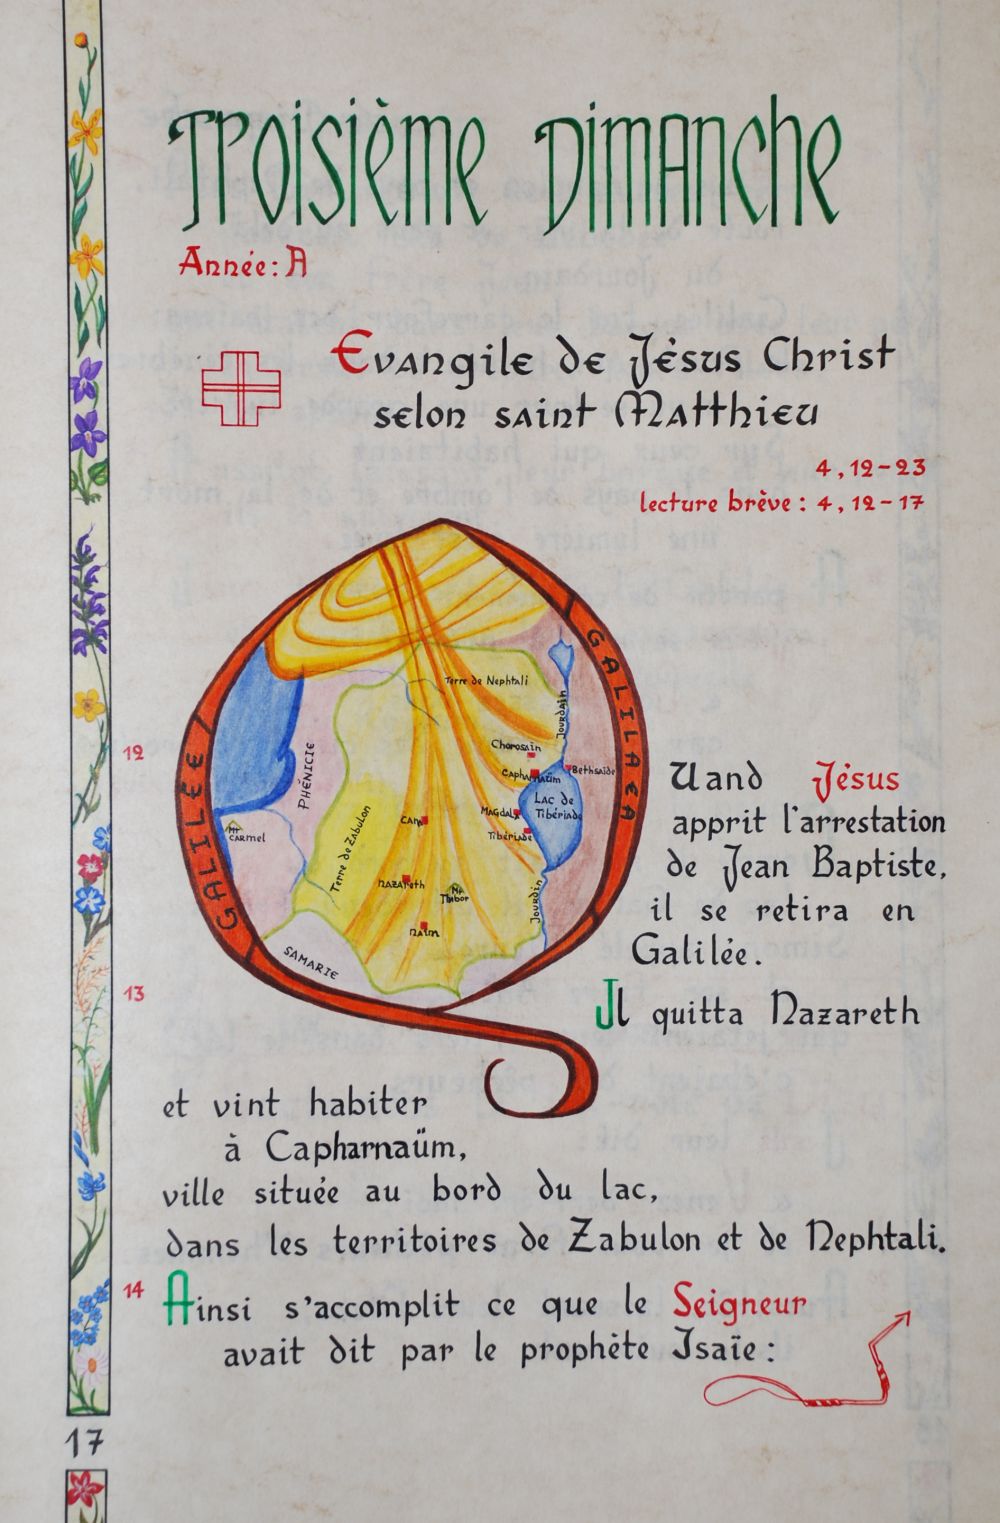 Troisième Dimanche
Année: A
Evangile de Jésus Christ
selon saint Matthieu
4, 12-23
lecture brève: 4, 12-17
GALILÉE
GALILAEA
Terre de Nephtali
Jourdain
PHÉNICIE
Chorosain
Capharnaüm
Bethsaïde
Lac de
Tibériade
Magdala
Tibériade
Cana
Mt
Carmel
Terre de Zabulon
Nazareth
Mt
Thabor
Jourdin
Naïm
SAMARIE
12
Quand Jésus
apprit l'arrestation
de Jean Baptiste,
il se retira en
Galilée.
13
Il quitta Nazareth
et vint habiter
à Capharnaüm,
ville située au bord du lac,
dans les territoires de Zabulon et de Nephtali.
14
Ainsi s'accomplit ce que le Seigneur
avait dit par le prophète Isaïe :
17